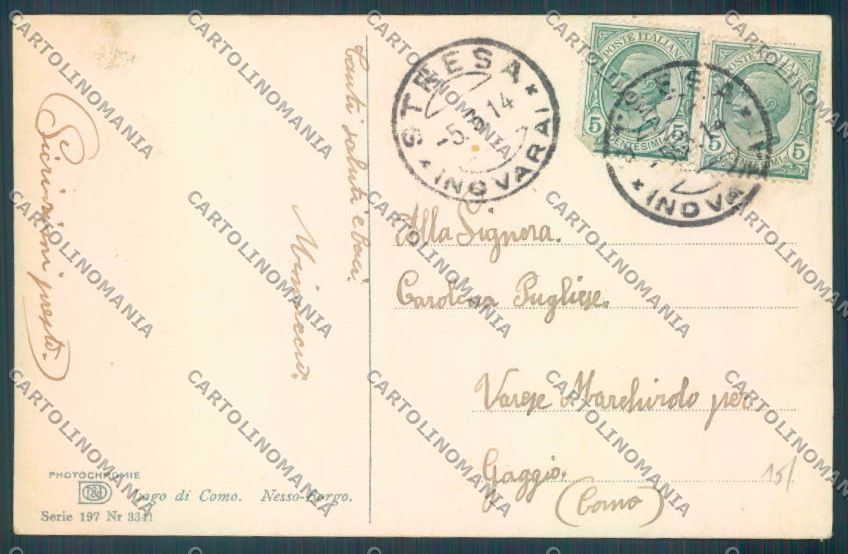 Scrivimi presto.
Tanti saluti e baci.
PHOTOCHROMIE
Lago di Como. Nesso-Borgo.
Serie 197 Nr 3341
STRESA * (NOVARA) *
-5.14
POSTE ITALIANE
5 CENTESIMI 5
POSTE ITALIANE
5 CENTESIMI 5
Alla Signora.
Carolina Pugliese.
Varese Marchirolo per
Gaggio.
(Como)
15/
CARTOLINOMANIA